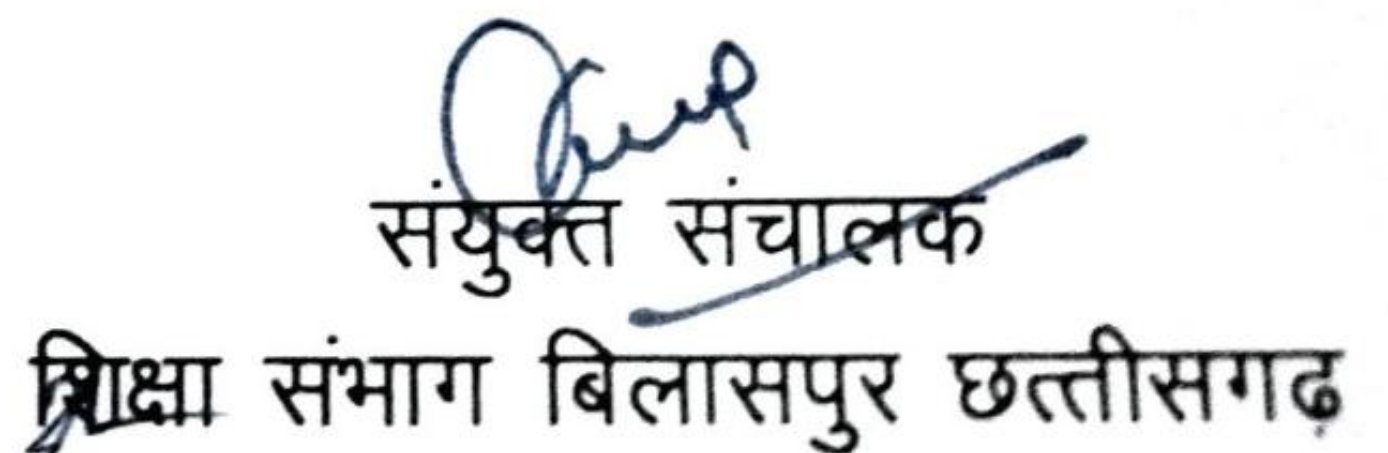 संयुक्त संचालक
शिक्षा संभाग बिलासपुर छत्तीसगढ़